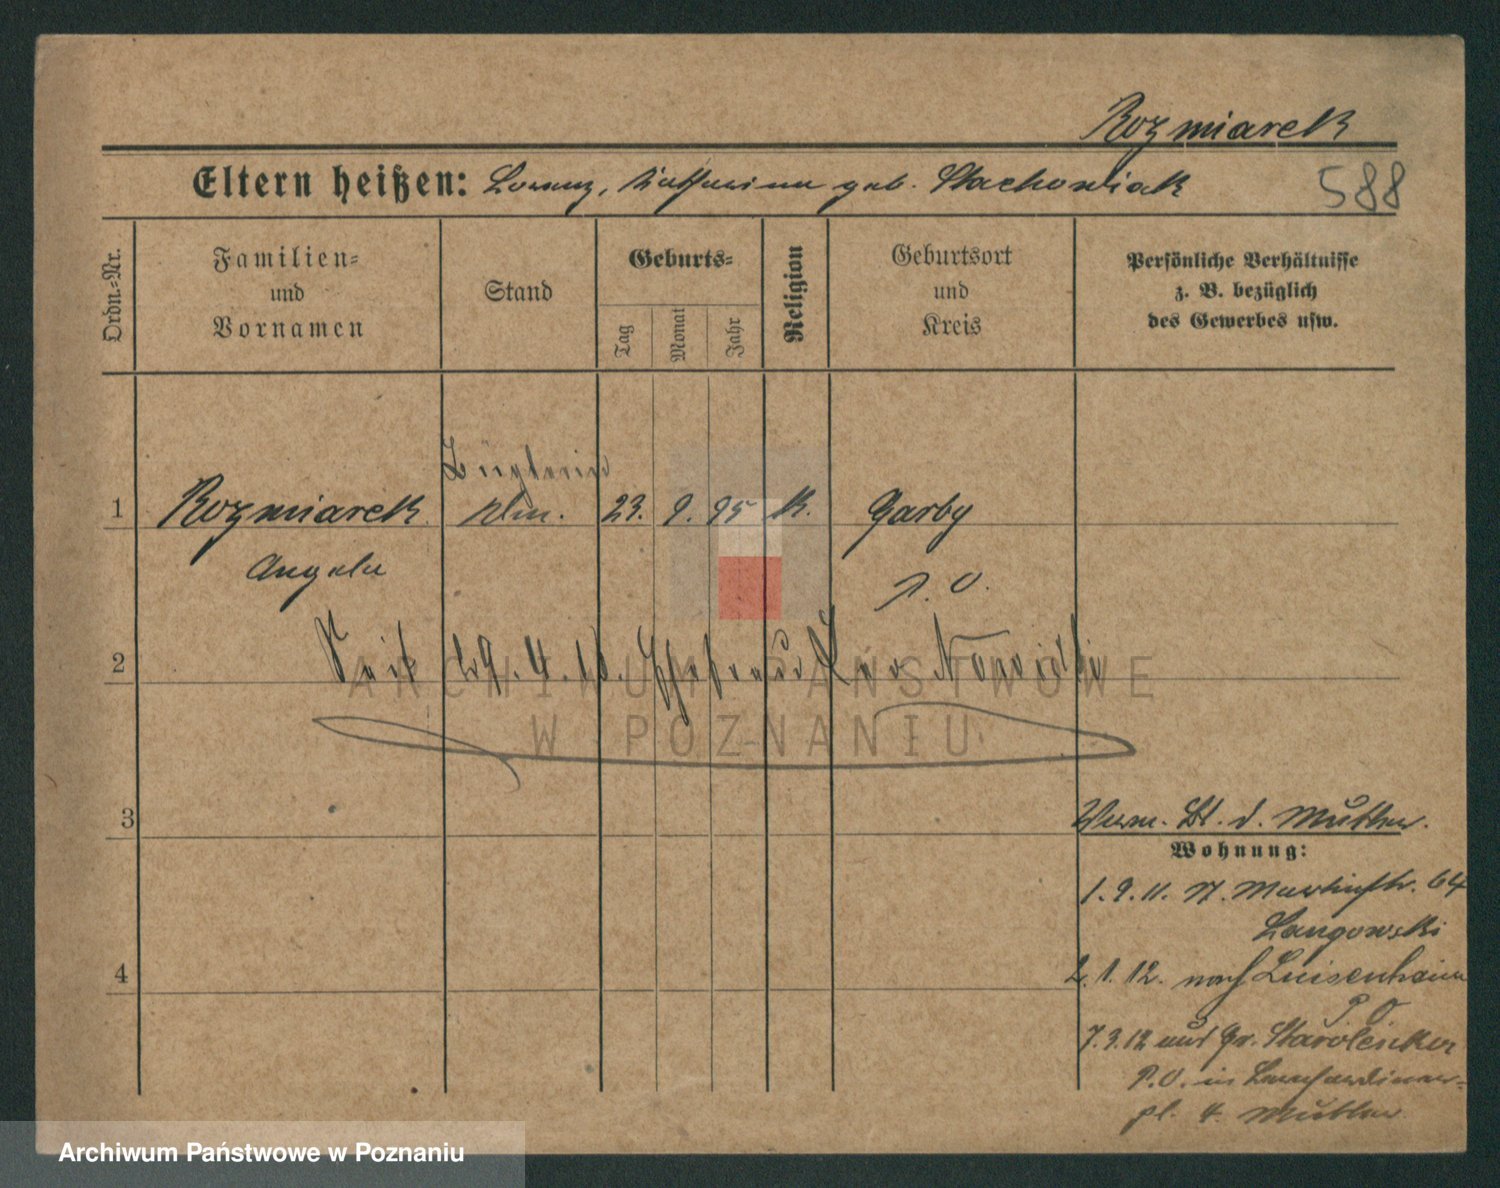 Rozmiarek
Eltern heißen: Lorenz, Katharina geb. Stachowiak
588
Ordn.-Nr.
Familien-
und
Vornamen
Stand
Geburts-
Tag
Monat
Jahr
Religion
Geburtsort
und
Kreis
Persönliche Verhältnisse
z. B. bezüglich
des Gewerbes usw.
Büglerin
1 Rozmiarek 23. 9. 95 K. Garby
Angela P. O.
2 Seit 29. 4. 18. Ehefrau Nowicki
3
Verm. Bl. d. Mutter.
Wohnung:
1. 9. 11. N. Martinstr. 64
Langowski
4
2. 1. 12. nach Luisenhain
P O
7. 3. 12 aus Gr. Starolenka
P. O. in Bernhardiner-
pl. 4. Mutter
ARCHIWUM PAŃSTWOWE
W POZNANIU
Archiwum Państwowe w Poznaniu